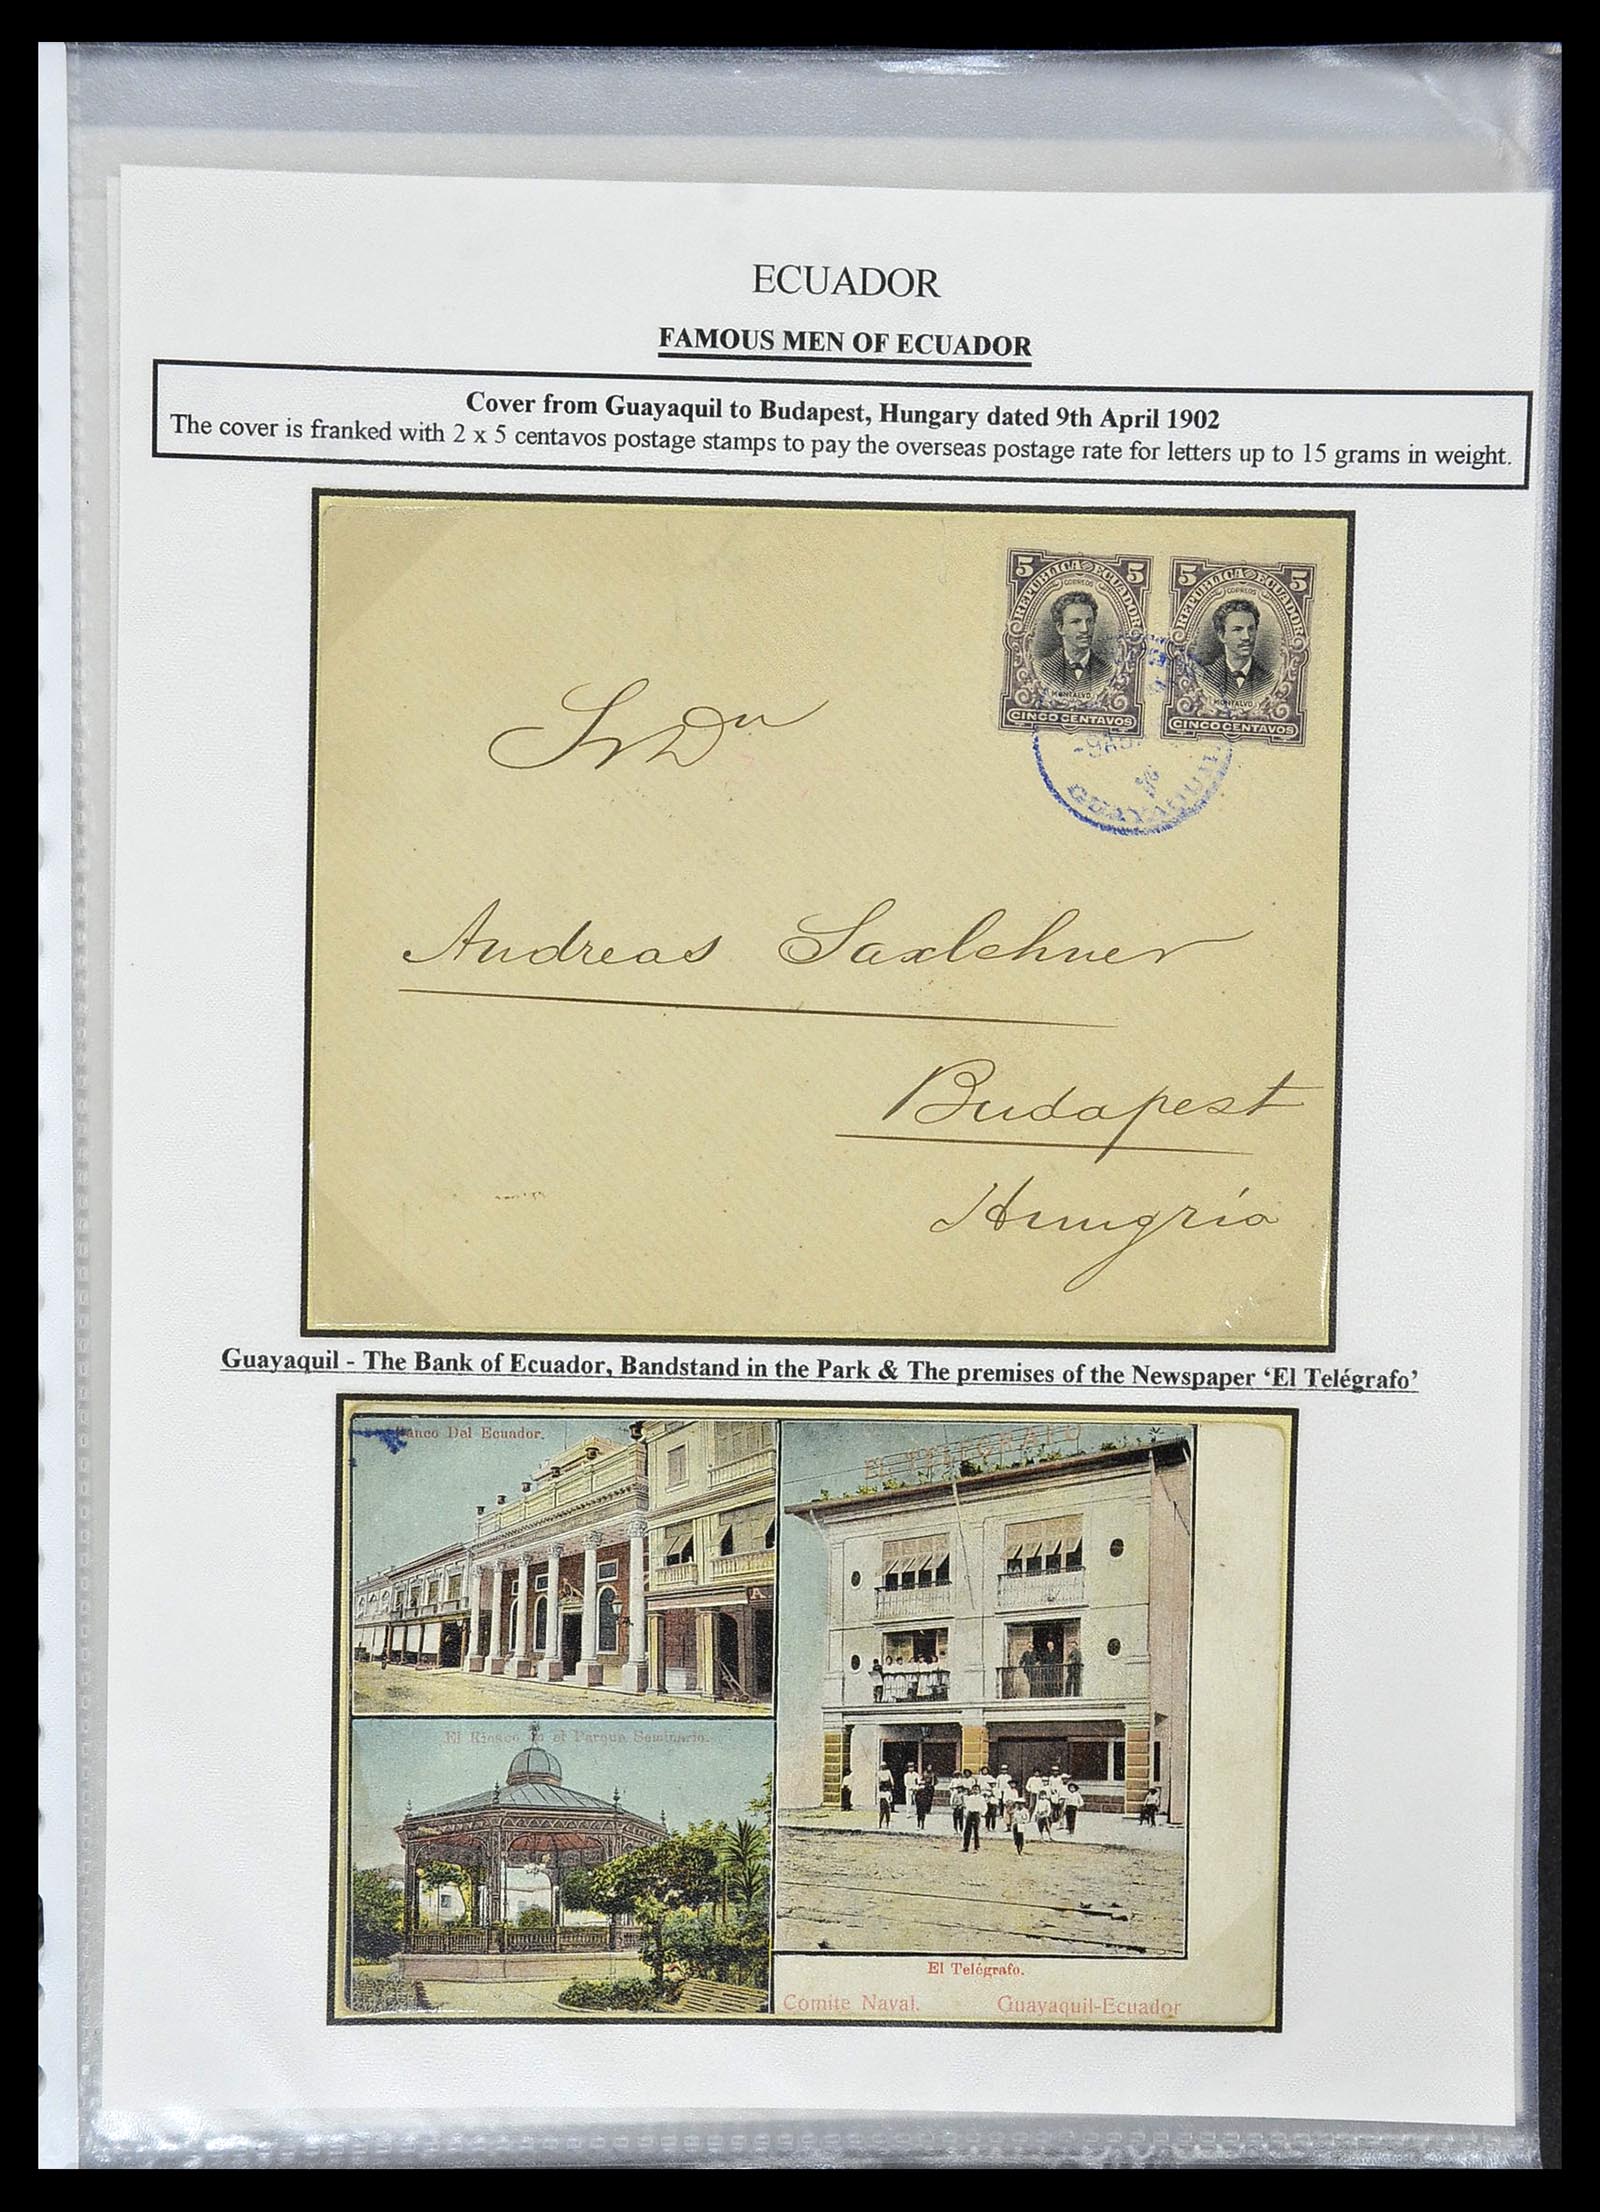 ECUADOR
FAMOUS MEN OF ECUADOR
Cover from Guayaquil to Budapest, Hungary dated 9th April 1902
The cover is franked with 2 x 5 centavos postage stamps to pay the overseas postage rate for letters up to 15 grams in weight.
5 5
REPUBLICA ECUADOR
CORREOS
MONTALVO
CINCO CENTAVOS
5 5
REPUBLICA ECUADOR
CORREOS
MONTALVO
CINCO CENTAVOS
GUAYAQUIL
Sr Dn
Andreas Saxlehner
Budapest
Hungría
Guayaquil - The Bank of Ecuador, Bandstand in the Park & The premises of the Newspaper ‘El Telégrafo’
Banco Del Ecuador.
EL TELEGRAFO
A
El Kiosco en el Parque Seminario.
El Telégrafo.
Comite Naval. Guayaquil-Ecuador